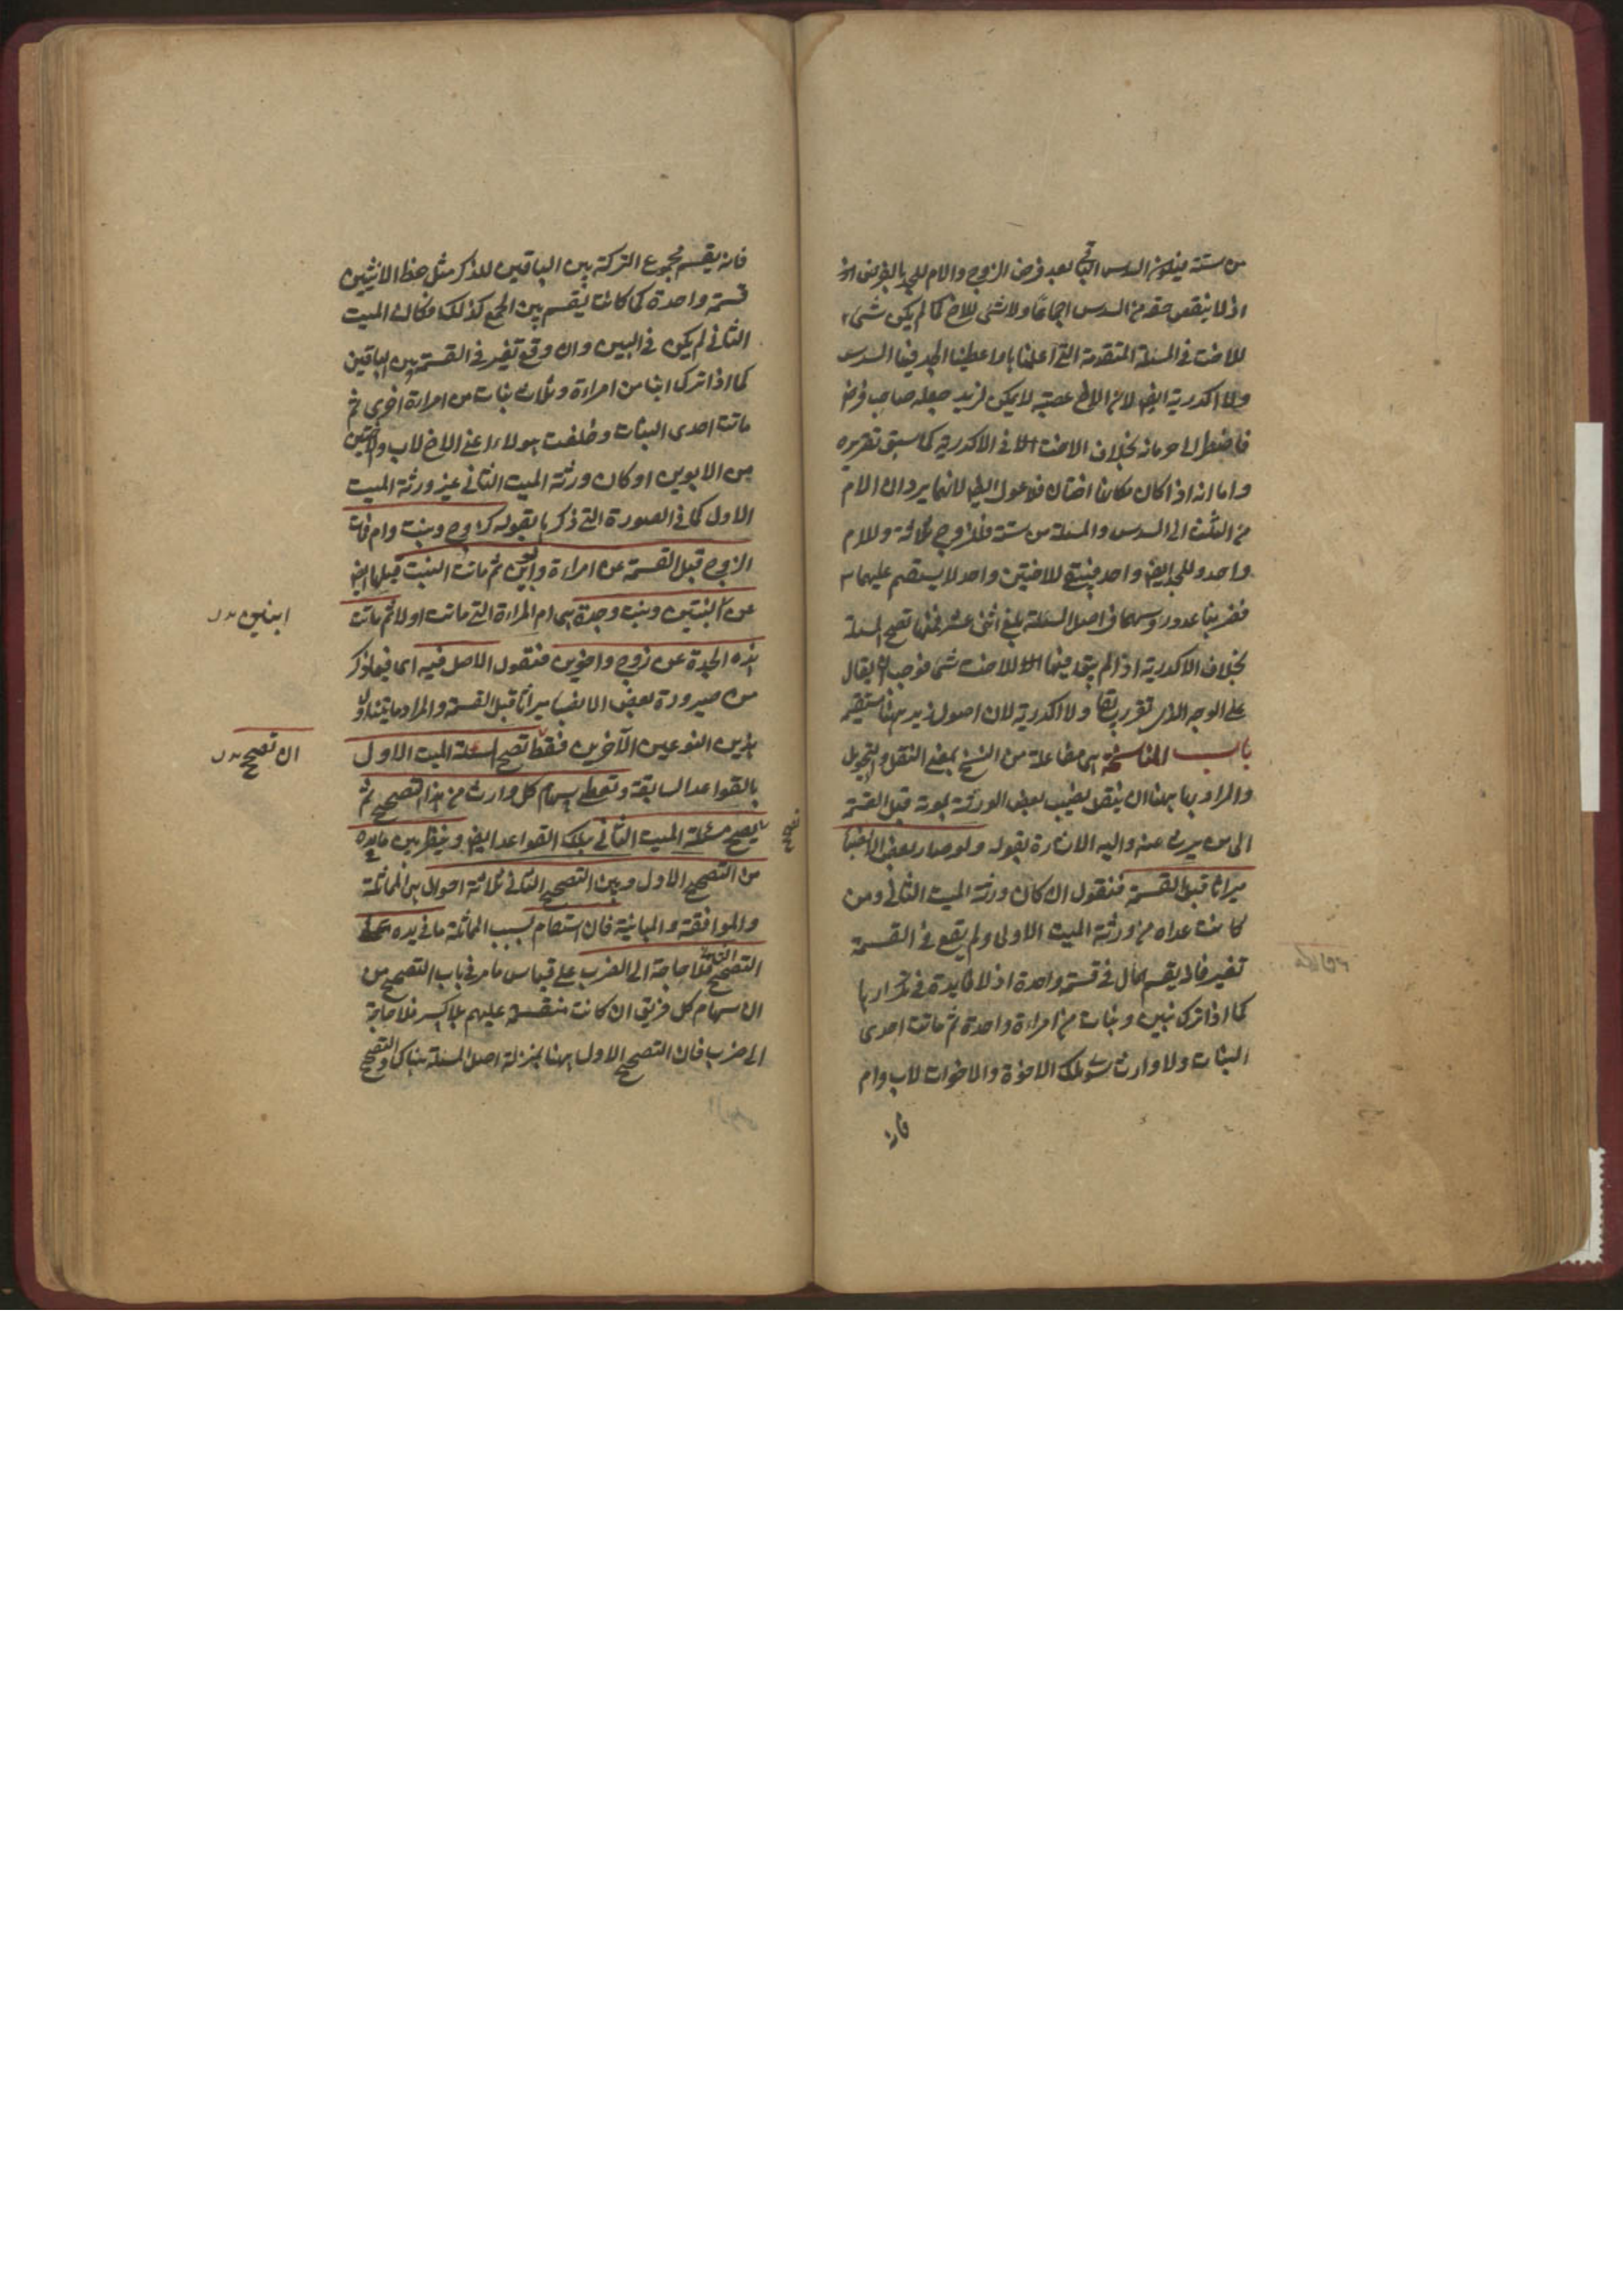 من ستة فيكون السدس الباقي بعد فرض الزوج والام للجد بالفرض
اذ لا ينقص حقه من السدس اجماعا ولا شئ للاخ كما لم يكن شئ
للاخت في المسئلة المتقدمة التي اعلنا بها واعطينا الجد فيها السدس
ولا اكدرية ايضا لان الاخ عصبة لا يمكن لزيد جعله صاحب فرض
فاضطر الى حرمانه بخلاف الاخت في الاكدرية كما سبق تقريره
واما انه اذا كان مكانها اختان فلا عول ايضا لانهما يردان الام
من الثلث الى السدس والمسئلة من ستة فللزوج ثلاثة وللام
واحد وللجد ايضا واحد فيبقى للاختين واحد لا يستقيم عليهما
فضربنا عدد رؤسهما في اصل المسئلة بلغ اثنى عشر فمنها تصح المسئلة
بخلاف الاكدرية اذ لم يبق فيها للاخت شئ فوجب ان يقال
على الوجه الذي تقرر سابقا ولا اكدرية لان اصول زيد ههنا مستقيم
باب المناسخة هي مفاعلة من النسخ بمعنى النقل والتحويل
والمراد بها ههنا ان ينتقل نصيب بعض الورثة بموته قبل القسمة
الى من يرث منه واليه الاشارة بقوله ولو صار بعض الانصباء
ميراثا قبل القسمة فنقول ان كان ورثة الميت الثاني ومن
كانت عداه من ورثة الميت الاول ولم يقع في القسمة
تغير فانه يقسم المال في قسمة واحدة اذ لا فايدة في تكرارها
كما اذا ترك بنين وبنات من امراءة واحدة ثم ماتت احدى
البنات ولا وارث سوى تلك الاخوة والاخوات لاب وام
فانه
فانه يقسم مجموع التركة بين الباقين للذكر مثل حظ الانثيين
قسمة واحدة كما كانت يقسم بين الجمع كذلك فكان الميت
الثاني لم يكن في البين وان وقع تغير في القسمة بين الباقين
كما اذا ترك ابنا من امراءة وثلاث بنات من امراءة اخرى ثم
ماتت احدى البنات وخلفت هولاء اعني الاخ لاب واختين
من الابوين او كان ورثة الميت الثاني غير ورثة الميت
الاول كما في الصورة التي ذكرها بقوله كزوج وبنت وام فمات
الزوج قبل القسمة عن امراءة وابوين ثم ماتت البنت قبلها ايضا
عن ابنتين وبنت وجدة هي ام المراءة التي ماتت اولا ثم ماتت
هذه الجدة عن زوج واخوين فنقول الاصل فيه اي فيما ذكر
من صيرورة بعض الانصبا ميراثا قبل القسمة والمراد ما يتناول
هذين النوعين الآخرين فقط تصحح مسئلة الميت الاول
بالقواعد السابقة وتعطى سهام كل وارث من هذا التصحيح ثم
تصحح مسئلة الميت الثاني بتلك القواعد ايضا وينظر بين ما في يده
من التصحيح الاول وبين التصحيح الثاني ثلاثة احوال هي المماثلة
والموافقة والمباينة فان استقام بسبب المماثلة ما في يده على
التصحيح الثاني فلا حاجة الى الضرب على قياس ما مر في باب التصحيح من
ان سهام كل فريق ان كانت منقسمة عليهم بلا كسر فلا حاجة
الى ضرب فان التصحيح الاول ههنا بمنزلة اصل المسئلة هناك والتصحيح
ابنين
ان تصحح
تصحح